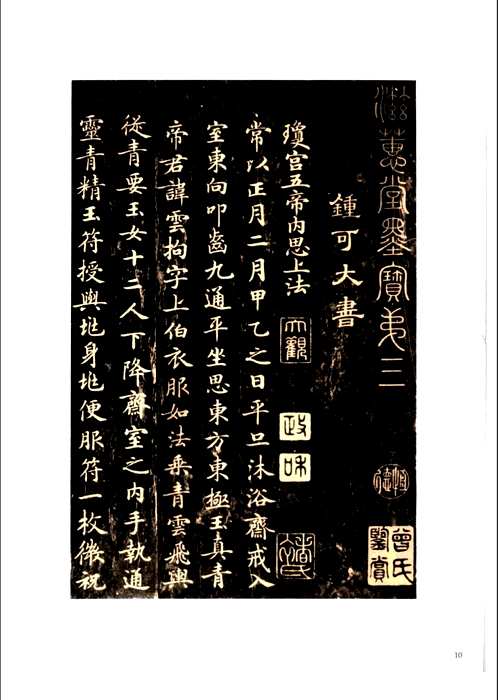 滋蕙堂墨寶弟三
恒德
曾氏鑒賞
鍾可大書
瓊宮五帝內思上法
大觀
政和
常以正月二月甲乙之日平旦沐浴齋戒入
室東向叩齒九通平坐思東方東極玉真青
帝君諱雲拘字上伯衣服如法乘青雲飛輿
從青要玉女十二人下降齋室之內手執通
靈青精玉符授與兆身兆便服符一枚微祝
10